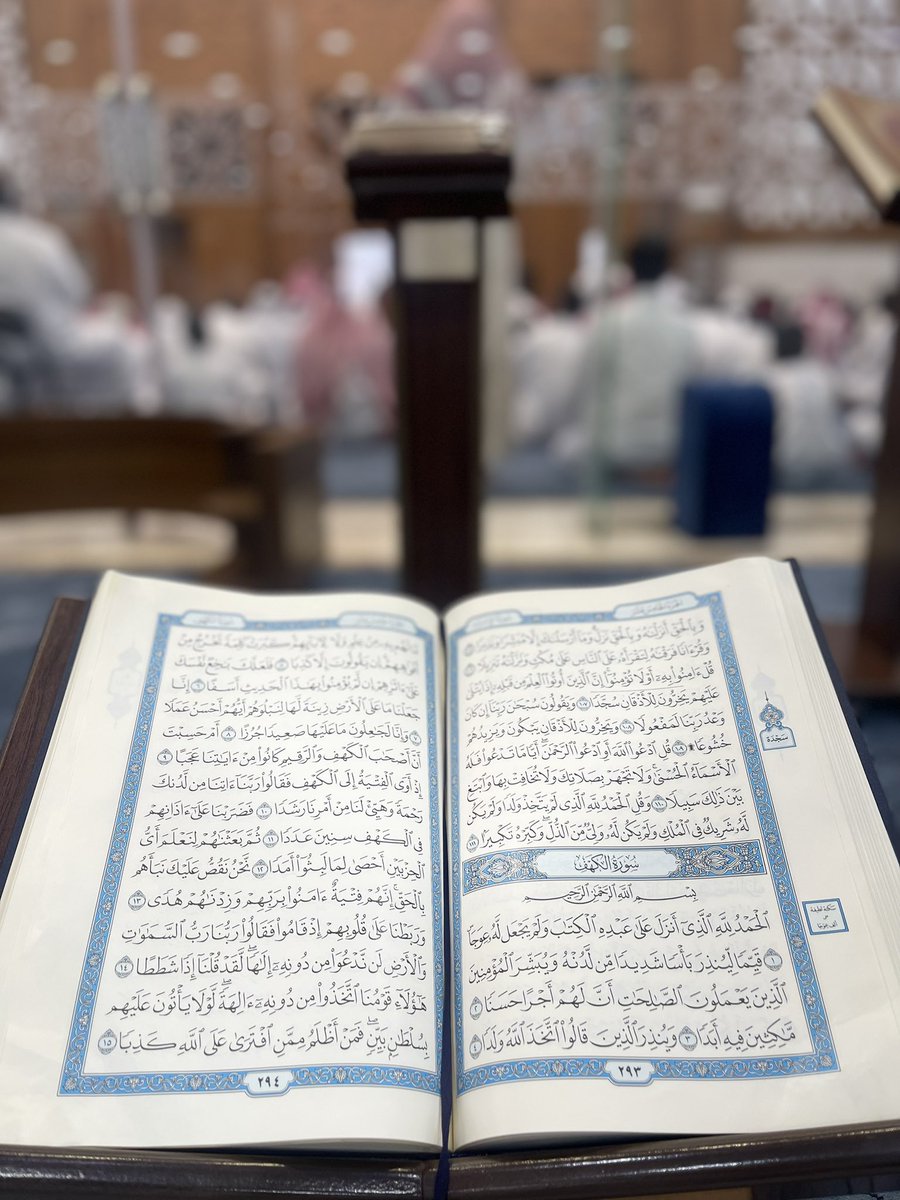 وَبِٱلْحَقِّ أَنزَلْنَٰهُ وَبِٱلْحَقِّ نَزَلَ وَمَآ أَرْسَلْنَٰكَ إِلَّا مُبَشِّرًا وَنَذِيرًا ١٠٥
وَقُرْءَانًا فَرَقْنَٰهُ لِتَقْرَأَهُۥ عَلَى ٱلنَّاسِ عَلَىٰ مُكْثٍ وَنَزَّلْنَٰهُ تَنزِيلًا ١٠٦
قُلْ ءَامِنُوا۟ بِهِۦٓ أَوْ لَا تُؤْمِنُوٓا۟ إِنَّ ٱلَّذِينَ أُوتُوا۟ ٱلْعِلْمَ مِن قَبْلِهِۦٓ إِذَا يُتْلَىٰ
عَلَيْهِمْ يَخِرُّونَ لِلْأَذْقَانِ سُجَّدًا ١٠٧ وَيَقُولُونَ سُبْحَٰنَ رَبِّنَآ إِن كَانَ
وَعْدُ رَبِّنَا لَمَفْعُولًا ١٠٨ وَيَخِرُّونَ لِلْأَذْقَانِ يَبْكُونَ وَيَزِيدُهُمْ
خُشُوعًا ۩ ١٠٩ قُلِ ٱدْعُوا۟ ٱللَّهَ أَوِ ٱدْعُوا۟ ٱلرَّحْمَٰنَ أَيًّا مَّا تَدْعُوا۟ فَلَهُ
ٱلْأَسْمَآءُ ٱلْحُسْنَىٰ وَلَا تَجْهَرْ بِصَلَاتِكَ وَلَا تُخَافِتْ بِهَا وَٱبْتَغِ
بَيْنَ ذَٰلِكَ سَبِيلًا ١١٠ وَقُلِ ٱلْحَمْدُ لِلَّهِ ٱلَّذِى لَمْ يَتَّخِذْ وَلَدًا وَلَمْ يَكُن
لَّهُۥ شَرِيكٌ فِى ٱلْمُلْكِ وَلَمْ يَكُن لَّهُۥ وَلِىٌّ مِّنَ ٱلذُّلِّ وَكَبِّرْهُ تَكْبِيرًۢا ١١١
سُورَةُ الكَهْفِ
بِسْمِ ٱللَّهِ ٱلرَّحْمَٰنِ ٱلرَّحِيمِ
ٱلْحَمْدُ لِلَّهِ ٱلَّذِىٓ أَنزَلَ عَلَىٰ عَبْدِهِ ٱلْكِتَٰبَ وَلَمْ يَجْعَل لَّهُۥ عِوَجَاۜ
١ قَيِّمًا لِّيُنذِرَ بَأْسًا شَدِيدًا مِّن لَّدُنْهُ وَيُبَشِّرَ ٱلْمُؤْمِنِينَ
ٱلَّذِينَ يَعْمَلُونَ ٱلصَّٰلِحَٰتِ أَنَّ لَهُمْ أَجْرًا حَسَنًا ٢
مَّٰكِثِينَ فِيهِ أَبَدًا ٣ وَيُنذِرَ ٱلَّذِينَ قَالُوا۟ ٱتَّخَذَ ٱللَّهُ وَلَدًا ٤
٢٩٣
سَجْدَة
سكتة لطيفة
على
ألف عوجا
مَّا لَهُم بِهِۦ مِنْ عِلْمٍ وَلَا لِءَابَآئِهِمْ كَبُرَتْ كَلِمَةً تَخْرُجُ مِنْ
أَفْوَٰهِهِمْ إِن يَقُولُونَ إِلَّا كَذِبًا ٥ فَلَعَلَّكَ بَٰخِعٌ نَّفْسَكَ
عَلَىٰٓ ءَاثَٰرِهِمْ إِن لَّمْ يُؤْمِنُوا۟ بِهَٰذَا ٱلْحَدِيثِ أَسَفًا ٦ إِنَّا
جَعَلْنَا مَا عَلَى ٱلْأَرْضِ زِينَةً لَّهَا لِنَبْلُوَهُمْ أَيُّهُمْ أَحْسَنُ عَمَلًا
٧ وَإِنَّا لَجَٰعِلُونَ مَا عَلَيْهَا صَعِيدًا جُرُزًا ٨ أَمْ حَسِبْتَ
أَنَّ أَصْحَٰبَ ٱلْكَهْفِ وَٱلرَّقِيمِ كَانُوا۟ مِنْ ءَايَٰتِنَا عَجَبًا ٩
إِذْ أَوَى ٱلْفِتْيَةُ إِلَى ٱلْكَهْفِ فَقَالُوا۟ رَبَّنَآ ءَاتِنَا مِن لَّدُنكَ
رَحْمَةً وَهَيِّئْ لَنَا مِنْ أَمْرِنَا رَشَدًا ١٠ فَضَرَبْنَا عَلَىٰٓ ءَاذَانِهِمْ
فِى ٱلْكَهْفِ سِنِينَ عَدَدًا ١١ ثُمَّ بَعَثْنَٰهُمْ لِنَعْلَمَ أَىُّ
ٱلْحِزْبَيْنِ أَحْصَىٰ لِمَا لَبِثُوٓا۟ أَمَدًا ١٢ نَّحْنُ نَقُصُّ عَلَيْكَ نَبَأَهُم
بِٱلْحَقِّ إِنَّهُمْ فِتْيَةٌ ءَامَنُوا۟ بِرَبِّهِمْ وَزِدْنَٰهُمْ هُدًى ١٣
وَرَبَطْنَا عَلَىٰ قُلُوبِهِمْ إِذْ قَامُوا۟ فَقَالُوا۟ رَبُّنَا رَبُّ ٱلسَّمَٰوَٰتِ
وَٱلْأَرْضِ لَن نَّدْعُوَا۟ مِن دُونِهِۦٓ إِلَٰهًا لَّقَدْ قُلْنَآ إِذًا شَطَطًا ١٤
هَٰٓؤُلَآءِ قَوْمُنَا ٱتَّخَذُوا۟ مِن دُونِهِۦٓ ءَالِهَةً لَّوْلَا يَأْتُونَ عَلَيْهِم
بِسُلْطَٰنٍۭ بَيِّنٍ فَمَنْ أَظْلَمُ مِمَّنِ ٱفْتَرَىٰ عَلَى ٱللَّهِ كَذِبًا ١٥
٢٩٤